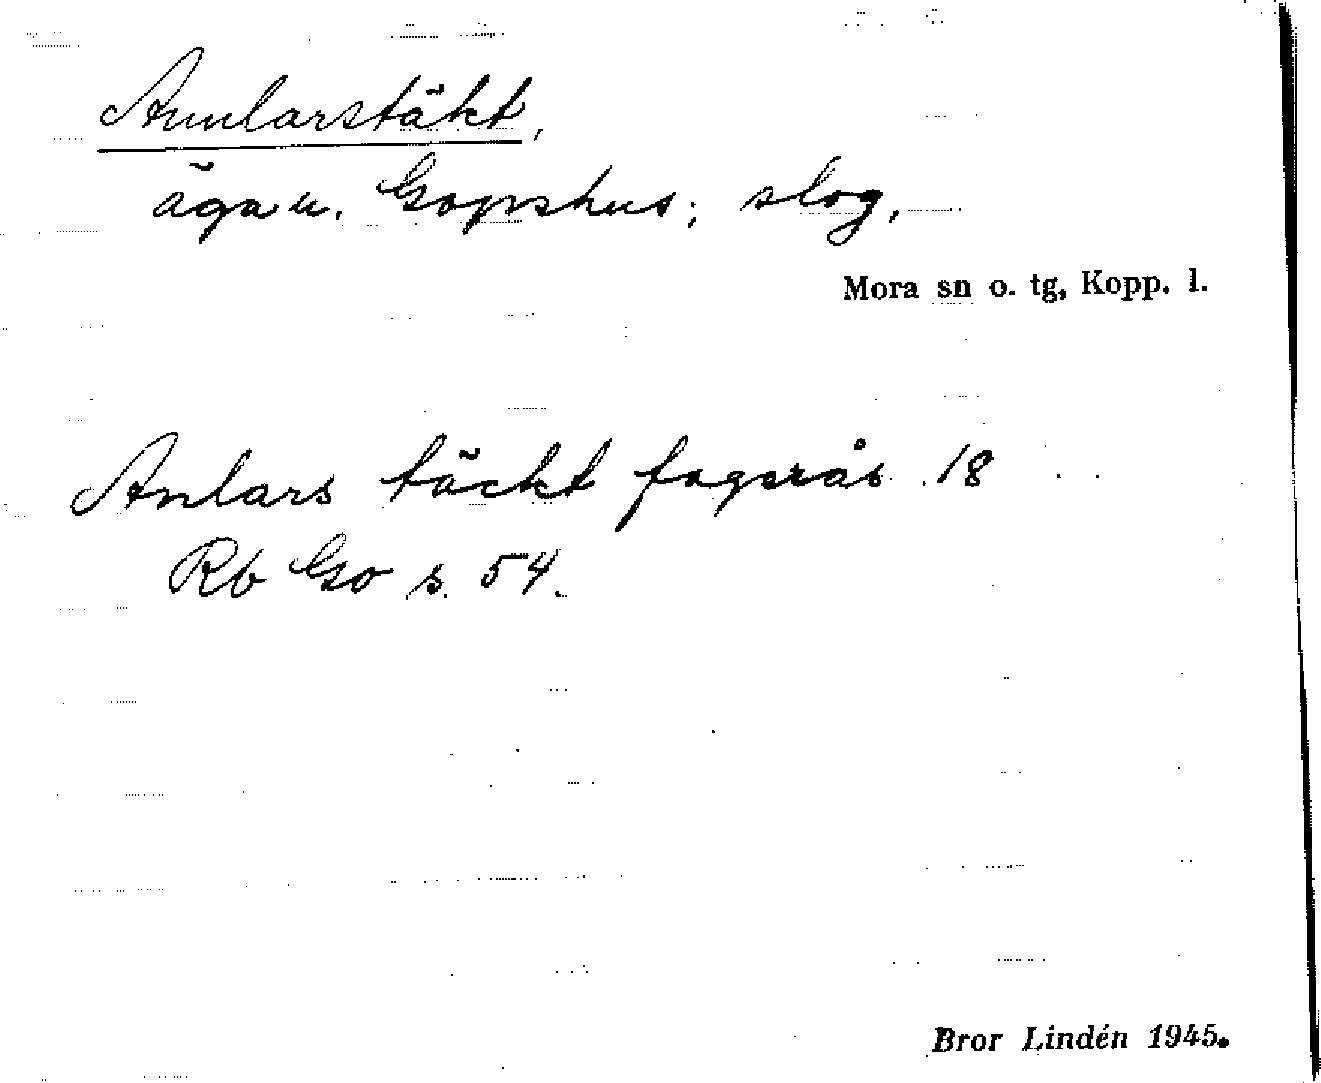 Annlarstäkt,
äga u. Gopshus; slog,
Mora sn o. tg, Kopp. l.
Anlars täckt fagerås 18
Rb Go s. 54.
Bror Lindén 1945.